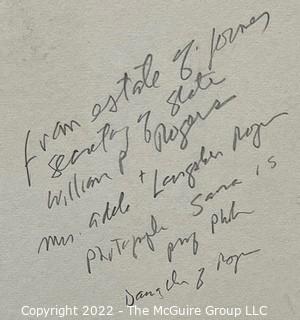 From estate of former
secretary of state
William P Rogers
Mrs. Adele + Langston Rogers
Photograph Sara is
Daughter of Rogers
Copyright 2022 - The McGuire Group LLC